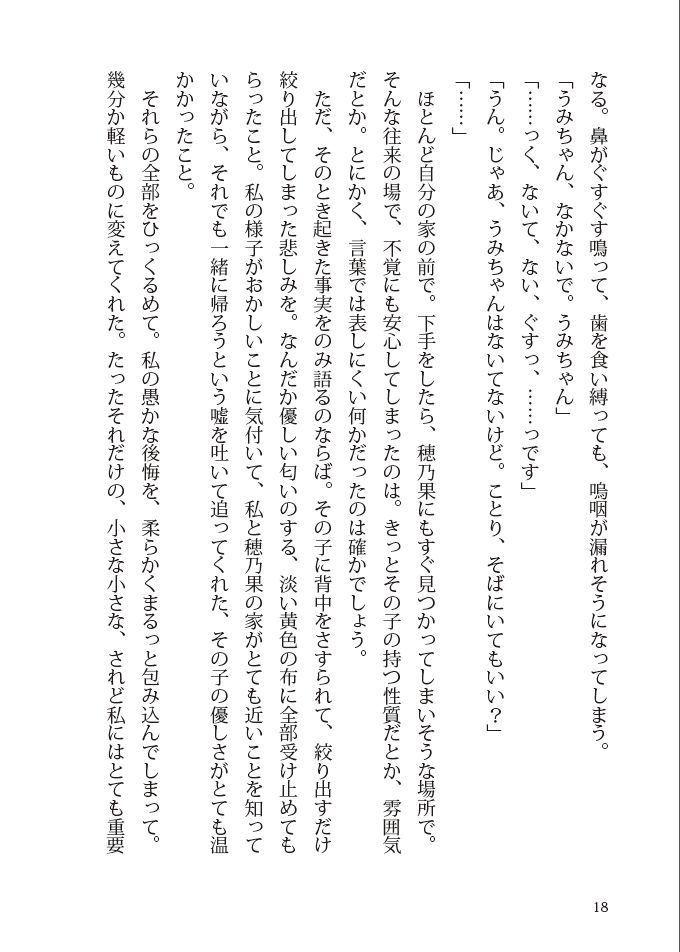 なる。鼻がぐすぐす鳴って、歯を食い縛っても、嗚咽が漏れそうになってしまう。
「うみちゃん、なかないで。うみちゃん」
「……っく、ないて、ない、ぐすっ、……っです」
「うん。じゃあ、うみちゃんはないてないけど。ことり、そばにいてもいい？」
「……」
　ほとんど自分の家の前で。下手をしたら、穂乃果にもすぐ見つかってしまいそうな場所で。
そんな往来の場で、不覚にも安心してしまったのは。きっとその子の持つ性質だとか、雰囲気
だとか。とにかく、言葉では表しにくい何かだったのは確かでしょう。
　ただ、そのとき起きた事実をのみ語るのならば。その子に背中をさすられて、絞り出すだけ
絞り出してしまった悲しみを。なんだか優しい匂いのする、淡い黄色の布に全部受け止めても
らったこと。私の様子がおかしいことに気付いて、私と穂乃果の家がとても近いことを知って
いながら、それでも一緒に帰ろうという嘘を吐いて追ってくれた、その子の優しさがとても温
かかったこと。
　それらの全部をひっくるめて。私の愚かな後悔を、柔らかくまるっと包み込んでしまって。
幾分か軽いものに変えてくれた。たったそれだけの、小さな小さな、されど私にはとても重要
18